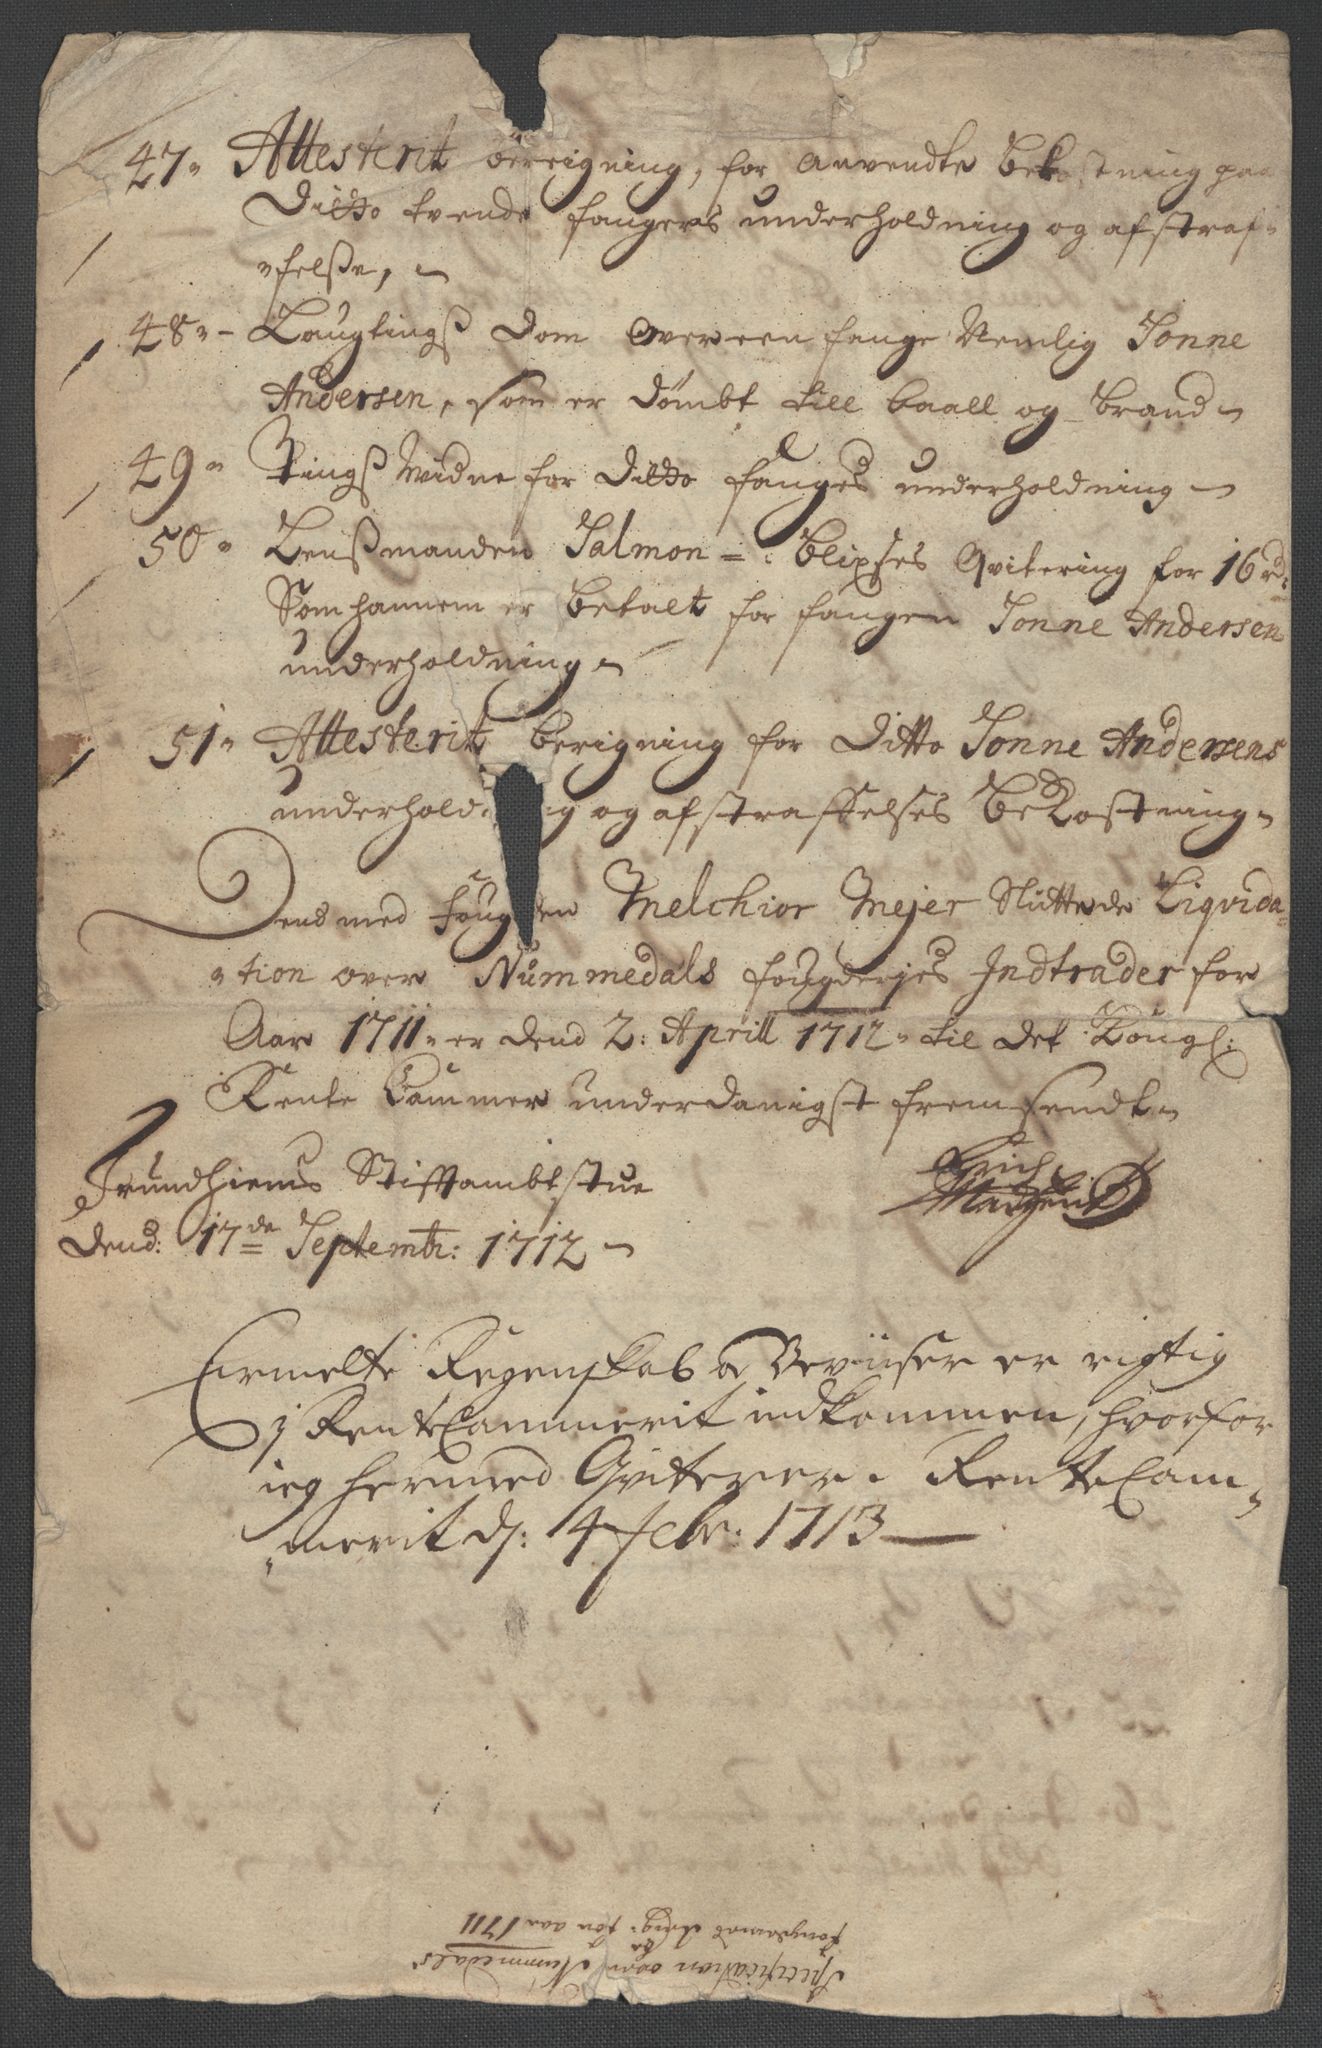 47- Attesterit bereigning, for anvendte bekostning paa
Ditto tvende fangers underholdning og afstraf-
-felsse,
48- Laugtingß Dom over een fange Nemlig Jonne
Andersen, som er dömbt till baall og brand
49- Tingß Vidne for Ditto fanges underholdning
50- Lenßmanden Salmon = Blixses Qvitering for 16 rd:
Som hannem er betalt for fangen Jonne Andersen
underholdning
51- Attesterit berigning for Ditto Jonne Andersens
underhold ng og afstraffelses bekostning
Dend med fougden Melchior Mejer Sluttede Liqvida-
-tion over Nummedals fougderjes Indtrader for
Aar 1711- er dend 2: Aprill 1712- til det Kongl:
Rente Cammer underdanigst fremsendt
Trundhiems Stiffambtstue
Dend: 17de Septembr: 1712
Erich
Madsen
Ermelte Regenskab og Beviiser er rigtig
j RenteCammerit indkommen, hvorfor
ieg hermed Qviterer. RenteCam-
-merit d: 4 Febr: 1713
Specification over Nummedals
fougderies for aar 1711